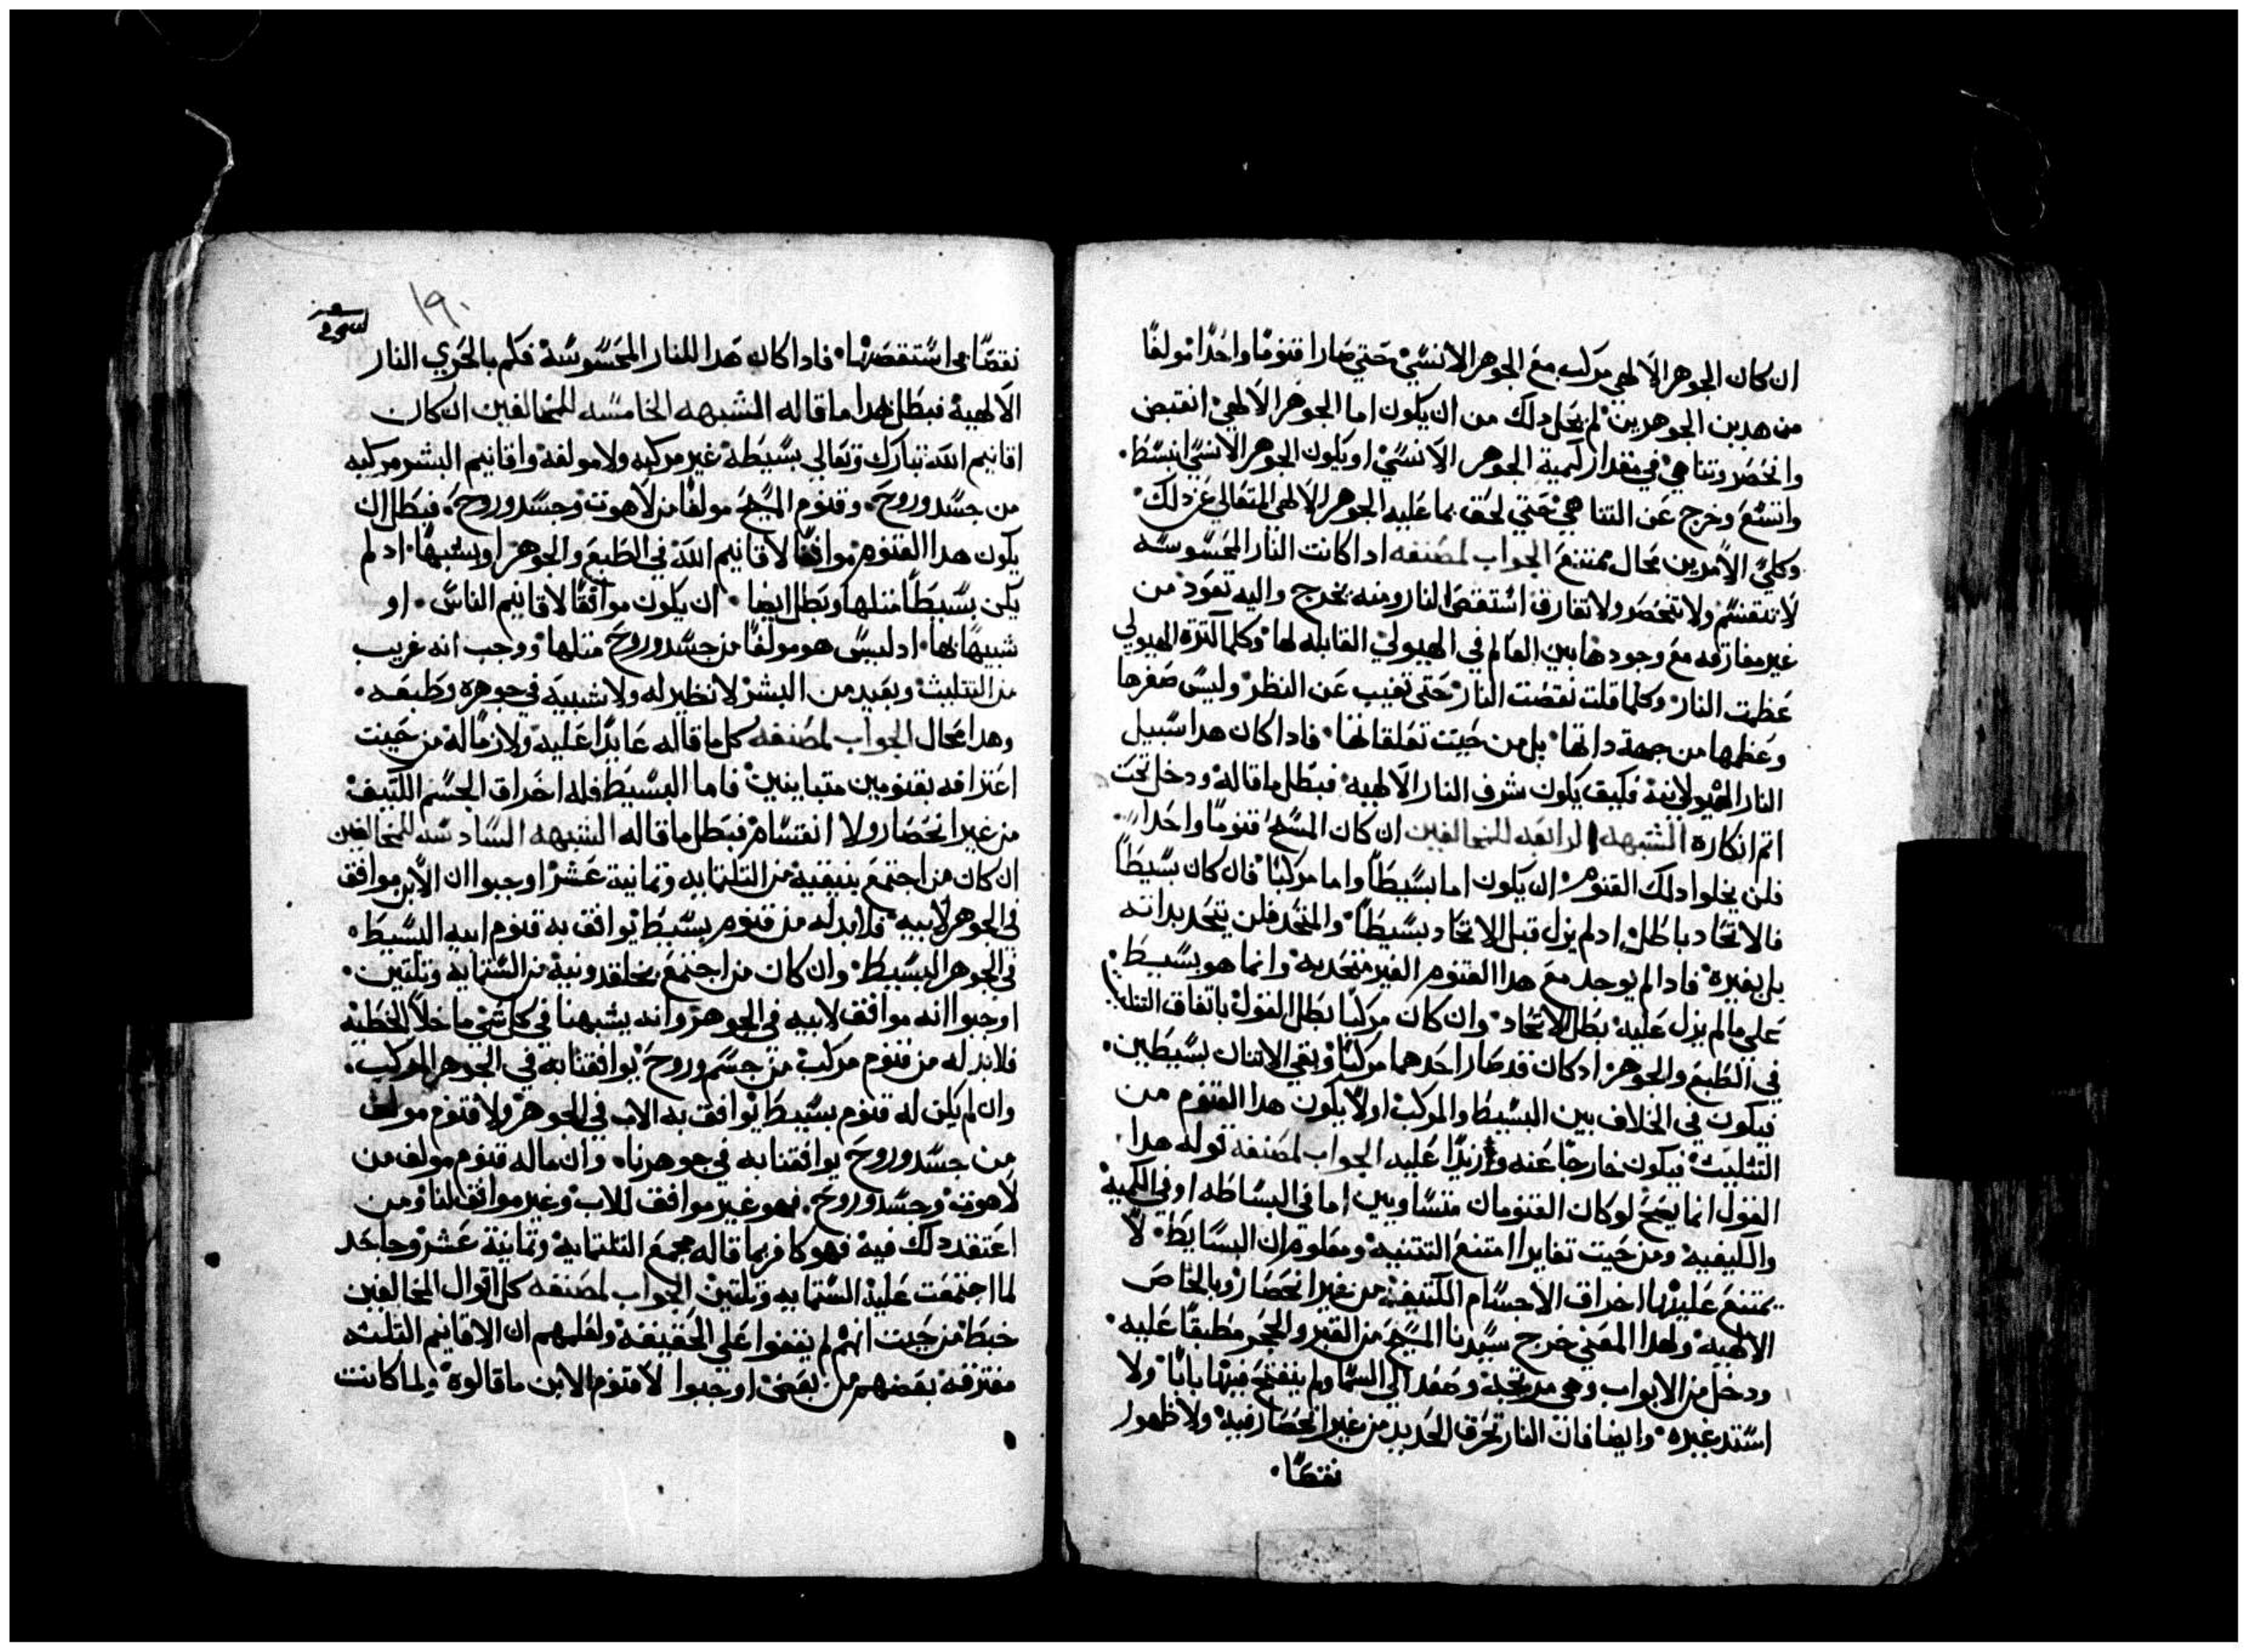 ان كان الجوهر الالهي مركب مع الجوهر الانسي حتي صارا قنوما واحدا مولفا
من هدين الجوهرين لم يخل دلك من ان يكون اما الجوهر الالهي انقبض
وانحصر وتناهي في مقدار كمية الجوهر الانسي او يكون الجوهر الانسي انبسط
واتسع وخرج عن التناهي حتي لحق بما عليه الجوهر الالهي المتعالي عن دلك
وكلي الامرين محال ممتنع الجواب لمصنفه ادا كانت النار المحسوسه
لا تنقسم ولا تنحصر ولا تفارق استقص النار ومنه تخرج واليه تعود من
غير مفارقه مع وجودها بين العالم في الهيولي القابله لها وكلما كترة الهيولي
عظمت النار وكلما قلت نقصت النار حتى تغيب عن النظر وليس صغرها
وعظمها من جهة داتها بل من حيت تعلقاتها فادا كان هدا سبيل
النار الهيولانية فكيف يكون شرف النار الالهيه فبطل ما قاله ودخل تحت
اتم انكاره الشبهه الرابعه للمخالفين ان كان المسيح قنوما واحدا
فلن يخلوا دلك القنوم ان يكون اما بسيطا واما مركبا فان كان بسيطا
فالاتحاد باطل ادلم يزل قبل الاتحاد بسيطا والمتحد فلن يتحد بداته
بل بغيره فادا لم يوجد مع هدا القنوم الغير متحد به وانما هو بسيط
علي ما لم يزل عليه بطل الاتحاد وان كان مركبا بطل القول باتفاق التتليت
في الطبع والجوهر اد كان قد صار احدهما مركبا وبقي الاتنان بسيطين
فيكون في الخلاف بين البسيط والمركب اولا يكون هدا القنوم من
التثليث فيكون خارجا عنه وزايدا عليه الجواب لمصنفه قوله هدا
القول انما يصح لو كان القنومان متساويين اما في البساطه او في الكميه
والكيفيه ومن حيت تغايرا امتنع التتنيه ومعلوم ان البسايط لا
يمتنع عليها اختراق الاجسام الكتيفه من غير انحصار وبالخاص
الالهيه ولهدا المعني خرج سيدنا المسيح من القبر والحجر مطبقا عليه
ودخل من الابواب وهي مرتجه وصعد الي السما ولم ينفتح فيها بابا ولا
استد غيره وايضا فان النار تخرق الحديد من غير انحصار فيه ولا ظهور
نقصا
١٩٠
نقصا في استقصها فادا كان هدا للنار المحسوسه فكم بالحري النار
الالهية فبطل بهدا ما قاله الشبهه الخامسه للمخالفين ان كان
اقانيم الله تبارك وتعالي بسيطة غير مركبه ولا مولفة واقانيم البشر مركبه
من جسد وروح وقنوم المسيح مولفا من لاهوت وجسد وروح فبطل ان
يكون هدا القنوم موافقا لاقانيم الله في الطبع والجوهر او يشبهها ادلم
يكن بسيطا متلها وبطل ايضا ان يكون موافقا لاقانيم الناس او
شبيها بها ادليس هو مولفا من جسد وروح متلها ووجب انه غريب
من التتليث وبعيد من البشر لا نظير له ولا شبيه في جوهره وطبعه
وهدا محال الجواب لمصنفه كل ما قاله عايدا عليه ولازما له من حيت
اعترافه بقنومين متباينين فاما البسيط فله اختراق الجسم الكتيف
من غير انحصار ولا انقسام فبطل ما قاله الشبهه السادسه للمخالفين
ان كان من اجتمع بنيقية من التلتمايه وتمانية عشر اوجبوا ان الابن موافق
في الجوهر لابيه فلابد له من قنوم بسيط يوافق به قنوم ابيه البسيط
في الجوهر البسيط وان كان من اجتمع بخلقدونية من الستمايه وتلتين
اوجبوا انه موافق لابيه في الجوهر وانه يشبهنا في كل شي ما خلا الخطيه
فلابد له من قنوم مركب من جسم وروح يوافقنا به في الجوهر المركب
وان لم يكن له قنوم بسيط يوافق به الاب في الجوهر ولا قنوم مولف
من جسد وروح يوافقنا به في جوهرنا وان ماله قنوم مولف من
لاهوت وجسد وروح فهو غير موافق للاب وغير موافق لنا ومن
اعتقد دلك فيه فهو كافر بما قاله مجمع التلتمايه وتمانية عشر وجاحد
لما اجتمعت عليه الستمايه وتلتين الجواب لمصنفه كل اقوال المخالفين
خبط من حيت انهم لم يقفوا علي الحقيقة ولعلمهم ان الاقانيم التلته
مفترقه بعضهم من بعض اوجبوا لاقنوم الابن ما قالوه ولما كانت